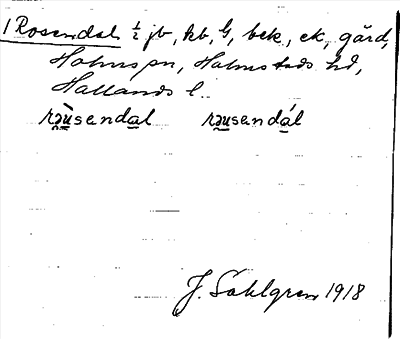 1 Rosendal ½ jb, kb, G, bek, ek, gård,
Holms sn, Halmstads hd,
Hallands l.
rəu̇̀sendal rəusendál
J. Sahlgren 1918